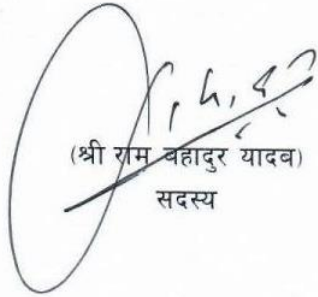 (श्री राम बहादुर यादव)
सदस्य